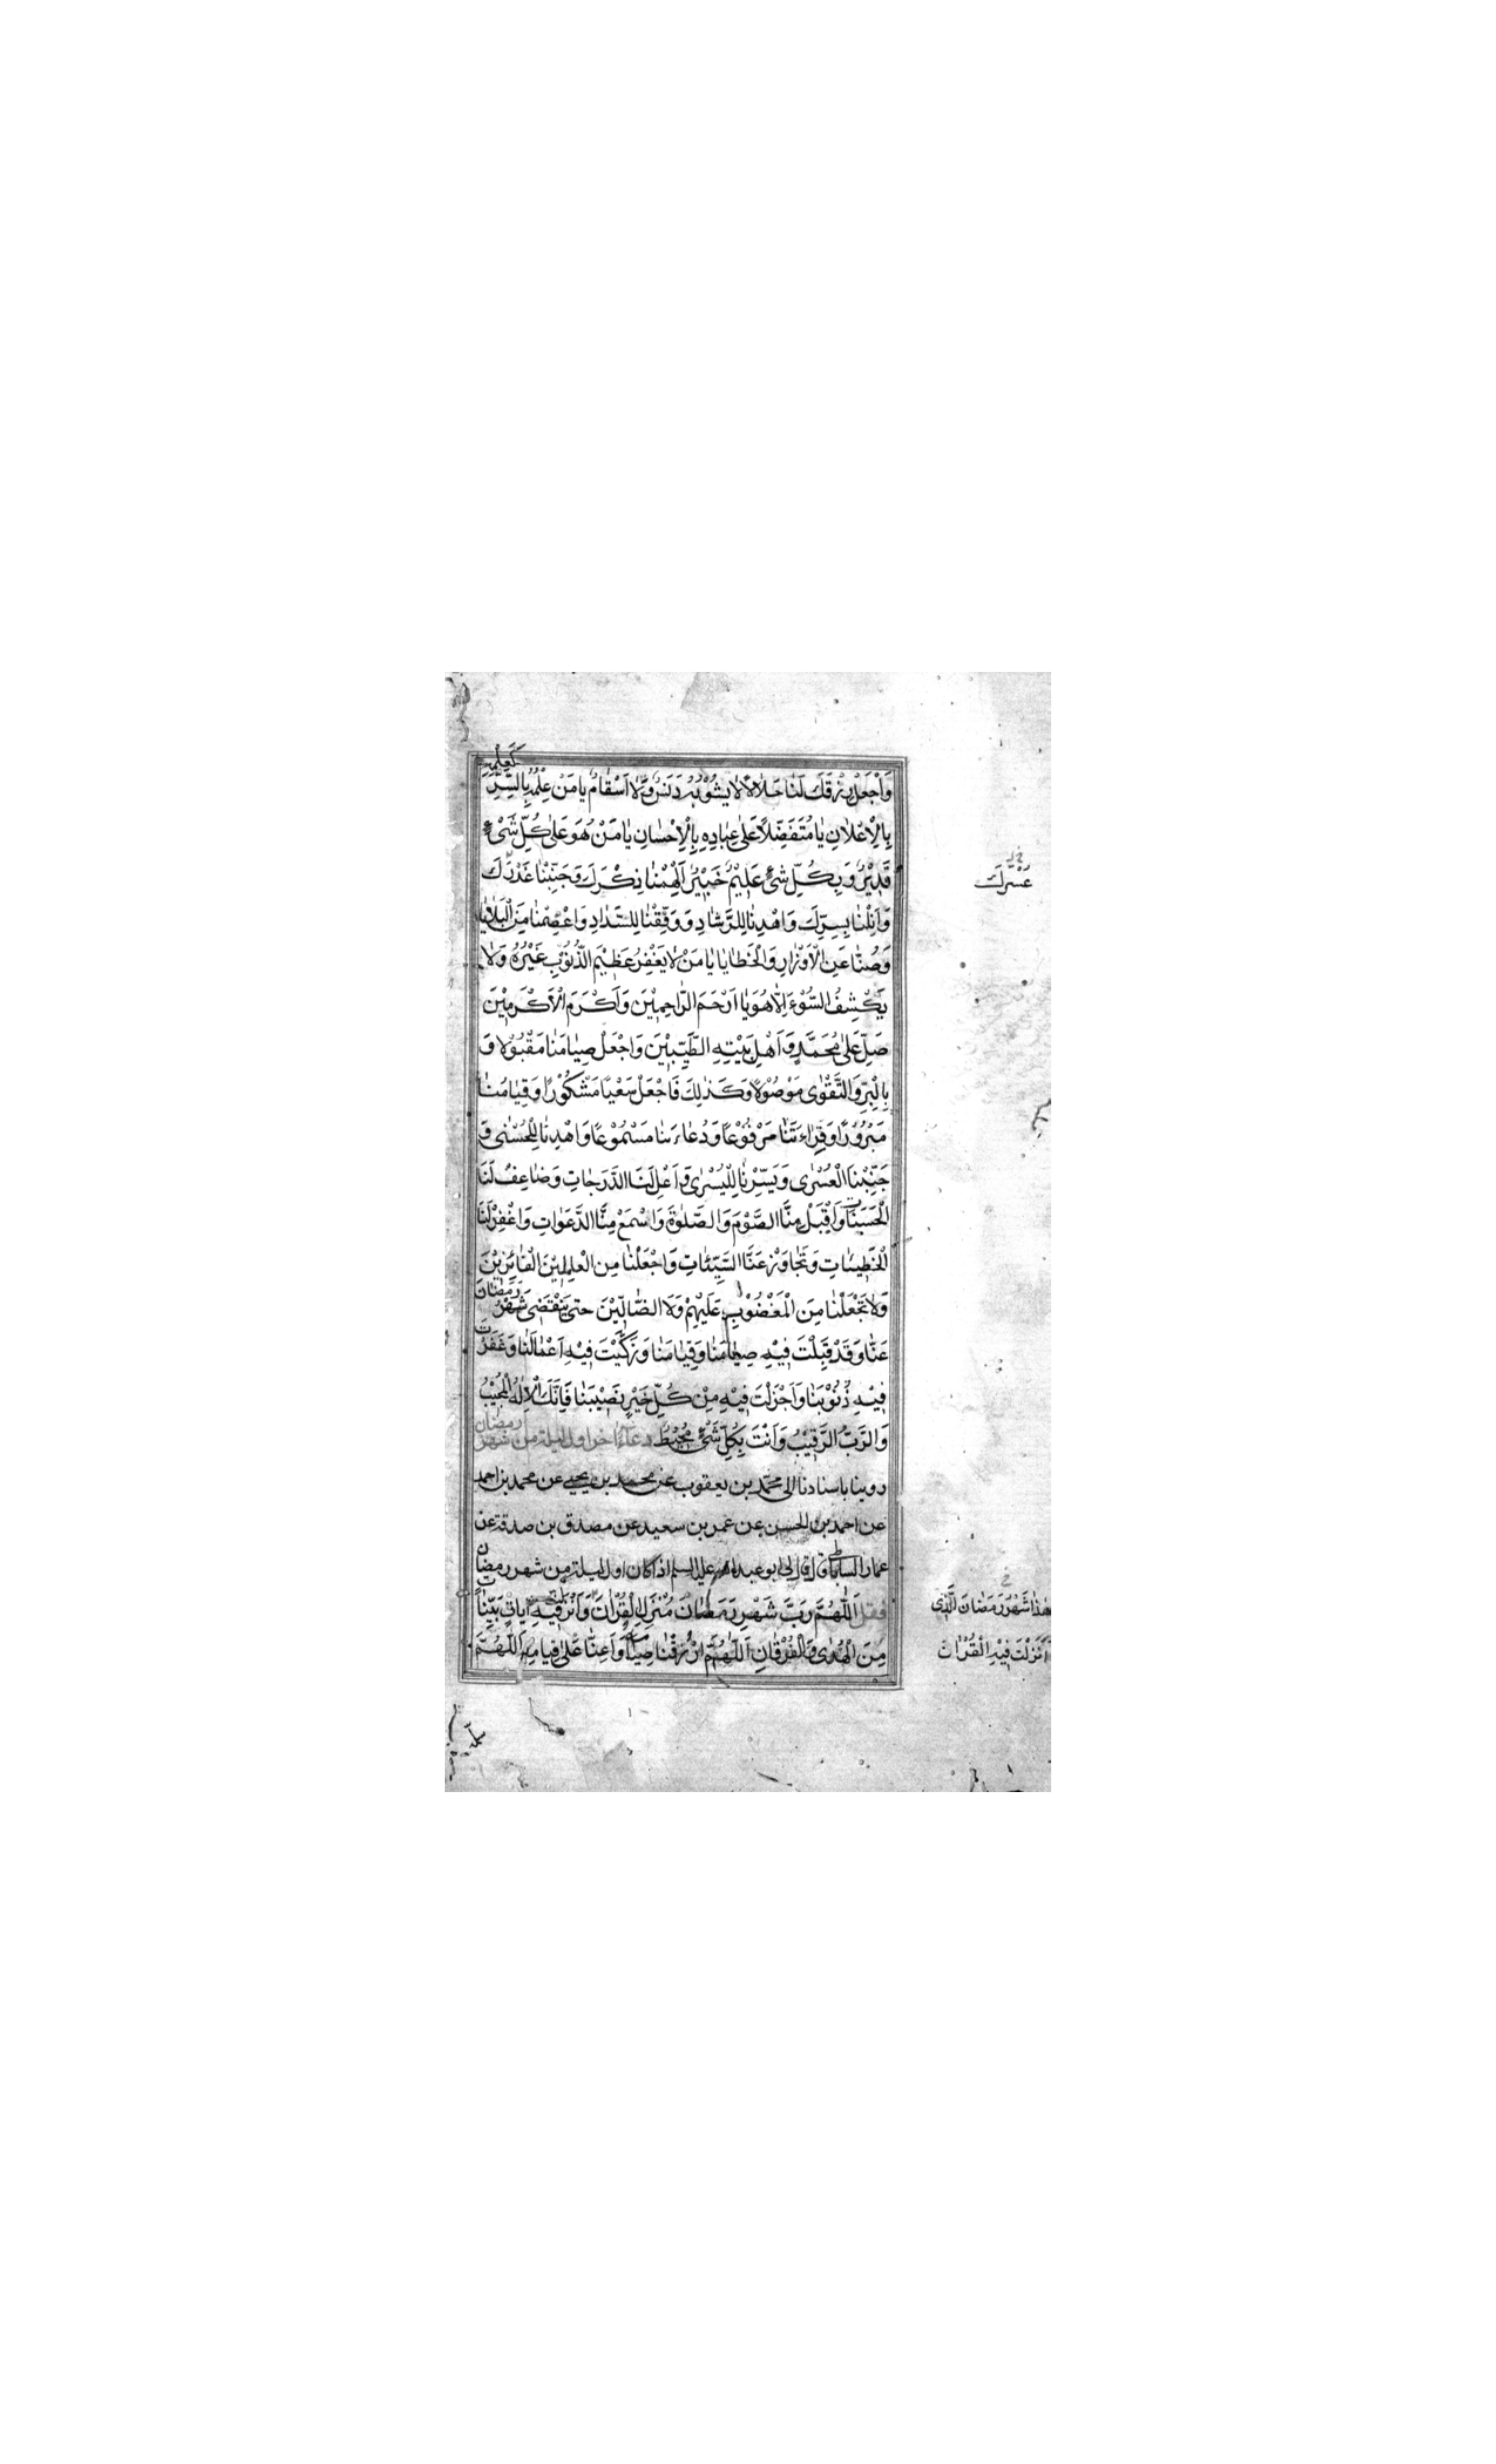 وَاجْعَلْ رِزْقَكَ لَنَا حَلَالًا لَا يَشُوْبُهُ دَنَسٌ وَلَا اَسْقَامٌ يَا مَنْ عِلْمُهُ بِالسِّرِّ كَعِلْمِهِ
بِالْاِعْلَانِ يَا مُتَفَضِّلًا عَلٰى عِبَادِهِ بِالْاِحْسَانِ يَا مَنْ هُوَ عَلٰى كُلِّ شَىْءٍ
قَدِيْرٌ وَ بِكُلِّ شَىْءٍ عَلِيْمٌ خَبِيْرٌ اَلْهِمْنَا ذِكْرَكَ وَجَنِّبْنَا
عُسْرَكَ
وَاَنِلْنَا يُسْرَكَ وَاهْدِنَا لِلرَّشَادِ وَ وَفِّقْنَا لِلسَّدَادِ وَاعْصِمْنَا مِنَ الْبَلَايَا
وَصُنَّا عَنِ الْاَوْزَارِ وَالْخَطَايَا يَا مَنْ لَا يَغْفِرُ عَظِيْمَ الذُّنُوْبِ غَيْرُهُ وَلَا
يَكْشِفُ السُّوْءَ اِلَّا هُوَ يَا اَرْحَمَ الرَّاحِمِيْنَ وَاَكْرَمَ الْاَكْرَمِيْنَ
صَلِّ عَلٰى مُحَمَّدٍ وَ اَهْلِ بَيْتِهِ الطَّيِّبِيْنَ وَاجْعَلْ صِيَامَنَا مَقْبُوْلًا وَ
بِالْبِرِّ وَالتَّقْوٰى مَوْصُوْلًا وَكَذٰلِكَ فَاجْعَلْ سَعْيَنَا مَشْكُوْرًا وَ قِيَامَنَا
مَبْرُوْرًا وَ قِرَاءَتَنَا مَرْفُوْعًا وَ دُعَاءَنَا مَسْمُوْعًا وَاهْدِنَا لِلْحُسْنٰى وَ
جَنِّبْنَا الْعُسْرٰى وَ يَسِّرْنَا لِلْيُسْرٰى وَ اَعْلِ لَنَا الدَّرَجَاتِ وَ ضَاعِفْ لَنَا
الْحَسَنَاتِ وَاقْبَلْ مِنَّا الصَّوْمَ وَالصَّلٰوةَ وَاسْمَعْ مِنَّا الدَّعَوَاتِ وَاغْفِرْ لَنَا
الْخَطِيْئَاتِ وَ تَجَاوَزْ عَنَّا السَّيِّئَاتِ وَاجْعَلْنَا مِنَ الْعَامِلِيْنَ الْفَائِزِيْنَ
وَلَا تَجْعَلْنَا مِنَ الْمَغْضُوْبِ عَلَيْهِمْ وَلَا الضَّالِّيْنَ حَتّٰى يَنْقَضِىَ شَهْرُ رَمَضَانَ
عَنَّا وَ قَدْ قَبِلْتَ فِيْهِ صِيَامَنَا وَ قِيَامَنَا وَ زَكَّيْتَ فِيْهِ اَعْمَالَنَا وَ غَفَرْتَ
فِيْهِ ذُنُوْبَنَا وَ اَجْزَلْتَ فِيْهِ مِنْ كُلِّ خَيْرٍ نَصِيْبَنَا فَاِنَّكَ الْاِلٰهُ الْمُجِيْبُ
وَالرَّبُّ الرَّقِيْبُ وَ اَنْتَ بِكُلِّ شَىْءٍ مُحِيْطٌ دعاء اخر اول ليلة من شهر رمضان
روينا باسنادنا الى محمد بن يعقوب عن محمد بن يحيى عن محمد بن احمد
عن احمد بن الحسن عن عمر بن سعيد عن مصدق بن صدقة عن
عمار الساباطى قال قال لى ابو عبد الله عليه السلم اذا كان اول ليلة من شهر رمضان
فقل اَللّٰهُمَّ رَبَّ شَهْرِ رَمَضَانَ مُنْزِلَ الْقُرْاٰنَ وَاَنْزَلْتَ فِيْهِ اٰيَاتٍ بَيِّنَاتٍ
هٰذَا شَهْرُ رَمَضَانَ الَّذِى
اَنْزَلْتَ فِيْهِ الْقُرْاٰنَ
مِنَ الْهُدٰى وَالْفُرْقَانِ اَللّٰهُمَّ ارْزُقْنَا صِيَامَهُ وَ اَعِنَّا عَلٰى قِيَامِهِ اَللّٰهُمَّ